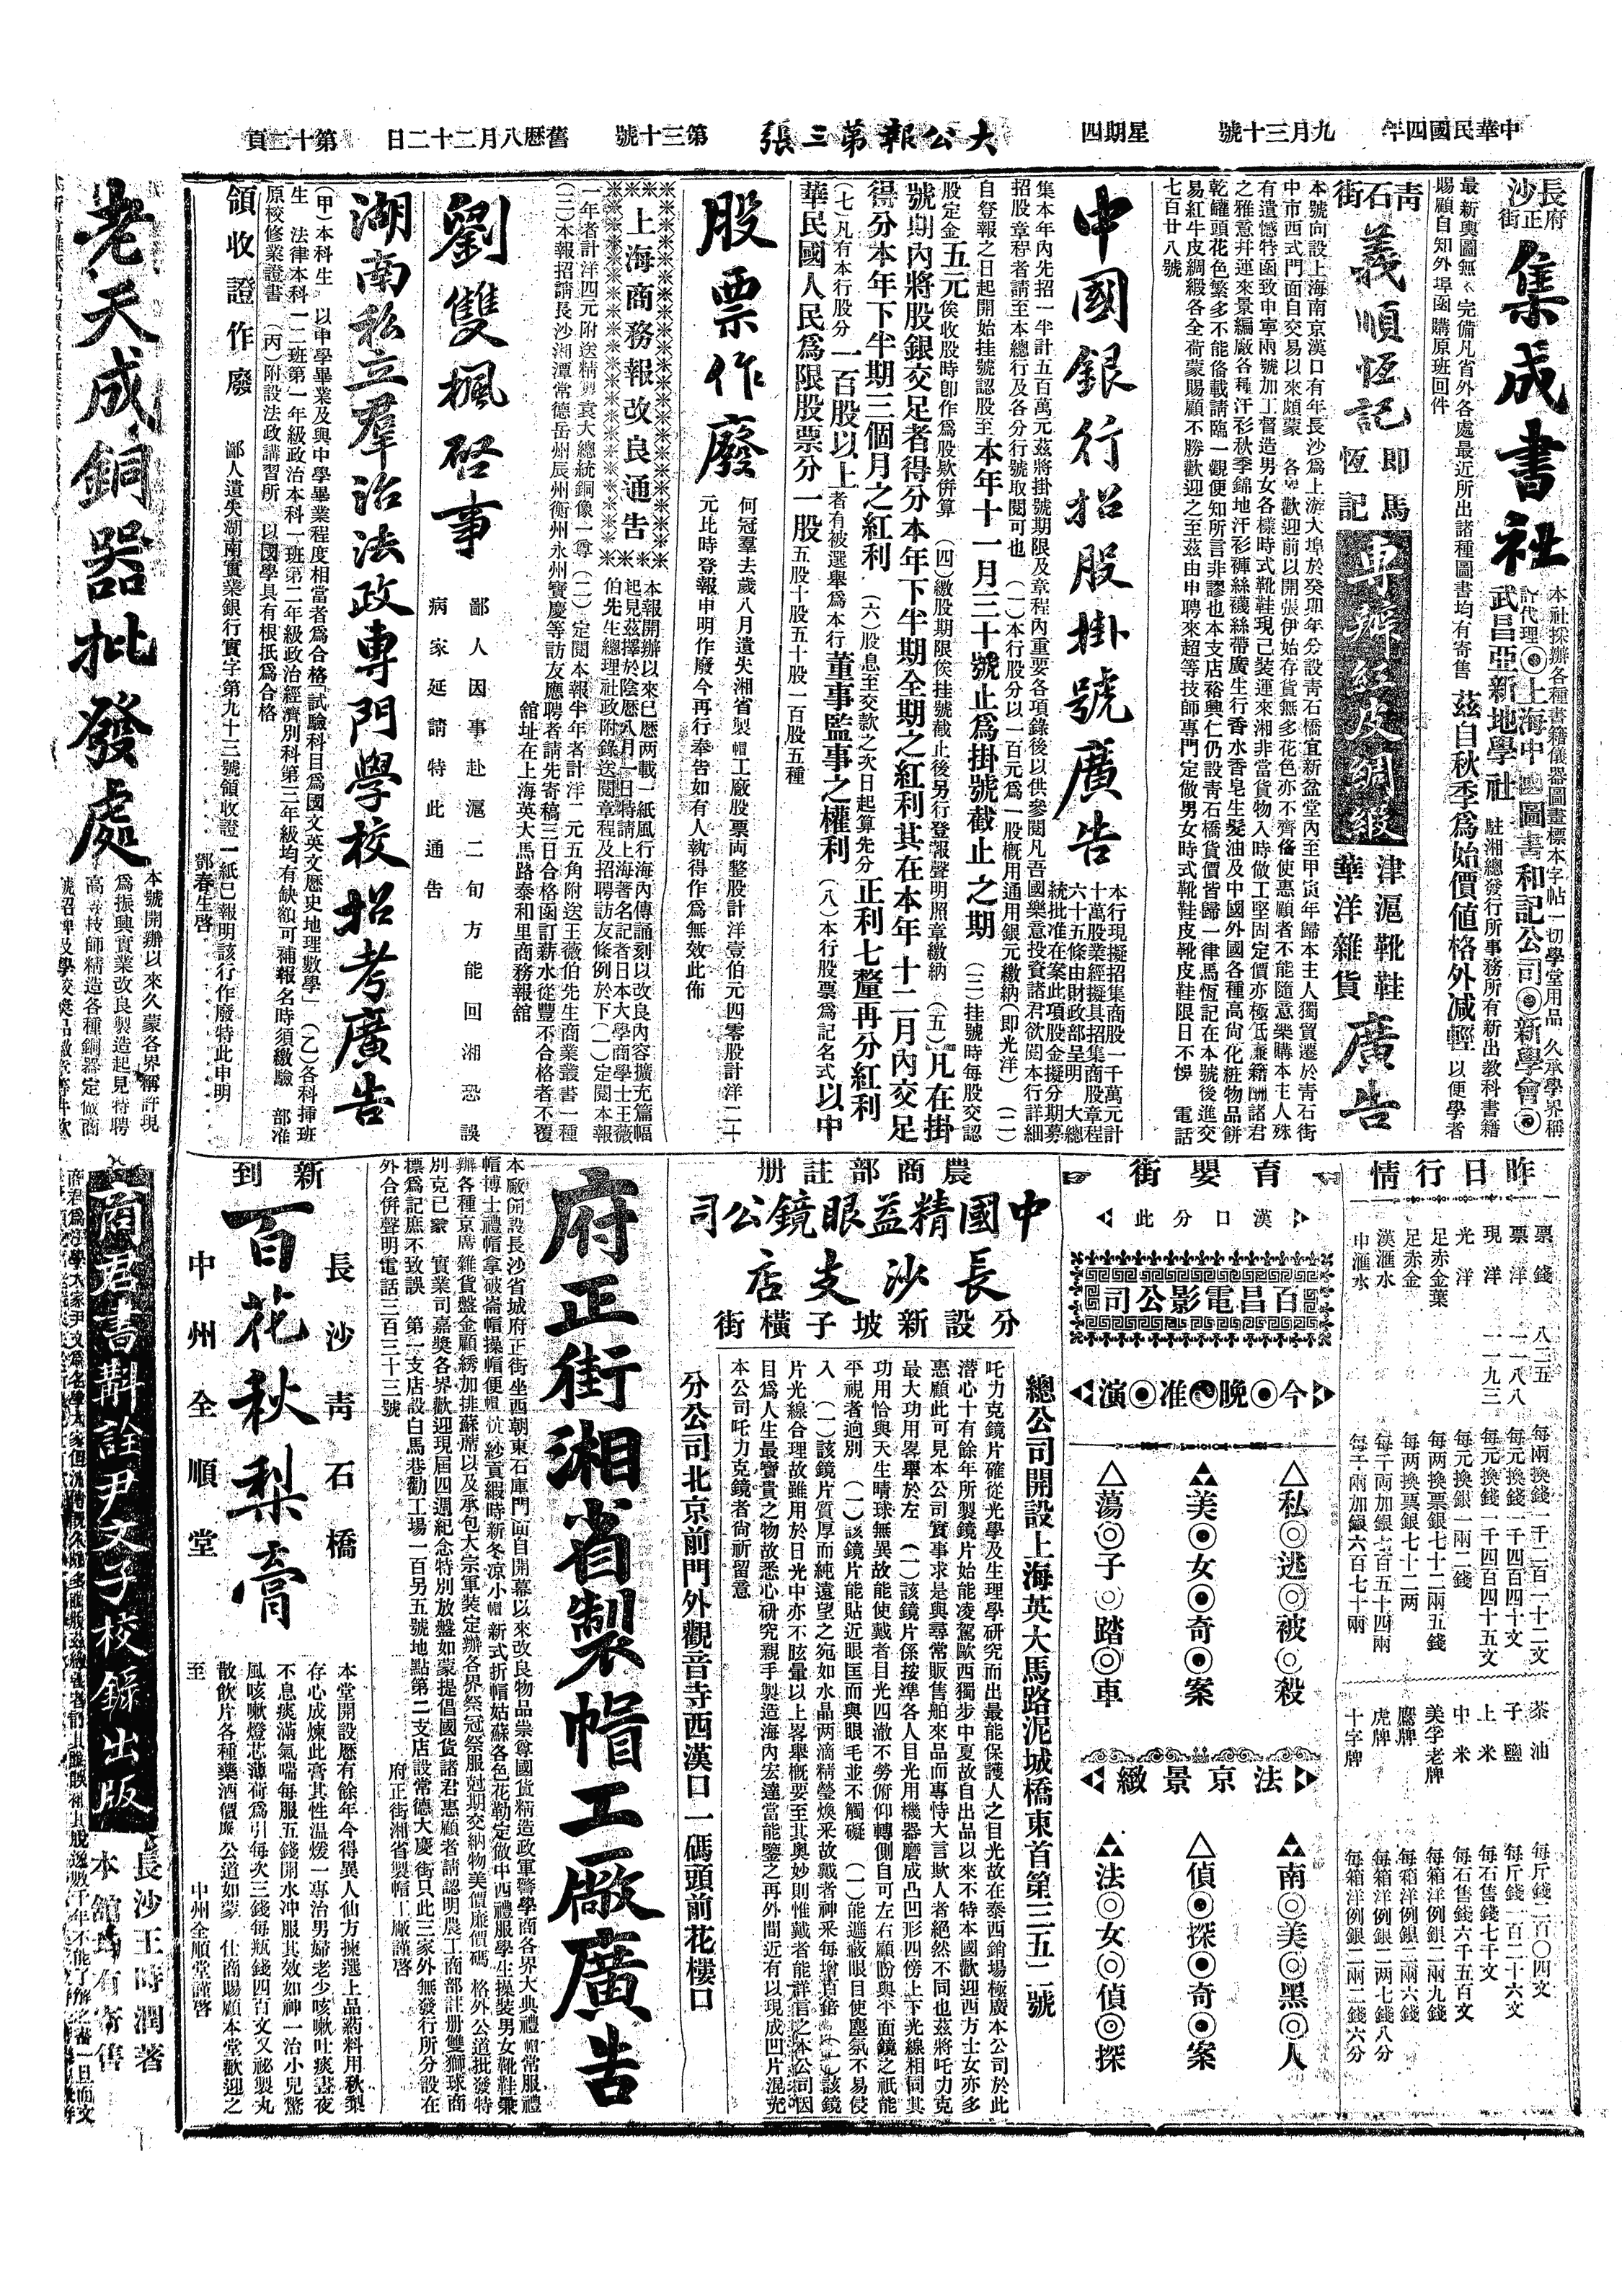 中華民國四年
九月三十號
星期四
大公報第三張
第三十號
舊歷八月二十二日
第十二頁
長沙
府正街
集成書社
本社採辦各種書籍儀器圖畫標本字帖一切學堂用品久承學界稱
許代理◎上海中國圖書和記公司◎新學會◎
武昌亞新地學社
駐湘總發行所事務所有新出教科書籍
茲自秋季爲始價値格外減輕以便學者
最新輿圖無
完備凡省外各處最近所出諸種圖書均有寄售
賜顧自知外埠函購原班回件
靑石街
義順恆記
即馬恆記
專辦紅皮綢緞
津滬靴鞋
華洋雜貨
廣告
本號向設上海南京漢口有年長沙爲上游大埠於癸卯年分設靑石橋宜新盆堂內至甲寅年歸本主人獨貿遷於靑石街
中市西式門面自交易以來頗蒙各界歡迎前以開張伊始存貨無多花色亦不齊備使惠顧者不能隨意樂購本主人殊
有遺憾特函致申寧兩號加工督造男女各樣時式靴鞋現已裝運來湘非當貨物入時做工堅固定價亦極低廉籍酬諸君
之雅意并運來景綸廠各種汗衫秋季錦地汗衫褲絲襪絲帶廣生行香水香皂生髮油及中國外國各種高尚化粧物品餅
乾罐頭花色繁多不能備載請臨一觀便知所言非謬也本支店裕興仁仍設靑石橋貨價皆歸一律馬恆記在本號後進交
易紅牛皮綢緞各全荷蒙賜顧不勝歡迎之至茲由申聘來超等技師專門定做男女時式靴鞋皮靴皮鞋限日不悮　電話
七百廿八號
中國銀行招股掛號廣告
本行現擬招集商股一千萬元計
十萬股業經擬具招集商股章程
六十五條由財政部呈明　大總
統批准在案此項股金擬分期募
集本年內先招一半計五百萬元茲將掛號期限及章程內重要各項錄後以供參閱凡吾國樂意投資諸君欲閱本行詳細
招股章程者請至本總行及各分行號取閱可也　（一）本行股分以一百元爲一股槪用通用銀元繳納（即光洋）　（二）
自登報之日起開始挂號認股至本年十一月三十號止爲掛號截止之期　（三）挂號時每股交認
股定金五元俟收股時卽作爲股欵併算　（四）繳股期限俟挂號截止後另行登報聲明照章繳納　（五）凡在掛
號期內將股銀交足者得分本年下半期全期之紅利其在本年十二月內交足
得分本年下半期三個月之紅利　（六）股息至交款之次日起算先分正利七釐再分紅利
（七）凡有本行股分一百股以上者有被選舉爲本行董事監事之權利　（八）本行股票爲記名式以中
華民國人民爲限股票分一股五股十股五十股一百股五種
股票作廢
何冠羣去歲八月遺失湘省製帽工廠股票兩整股計洋壹伯元四零股計洋二十
元比時登報申明作廢今再行奉告如有人執得作爲無效此佈
上海商務報改良通告
本報開辦以來已歷两載一紙風行海內傳誦刻以改良內容擴充篇幅
起見茲擇於陰歷八月一日特請上海著名記者日本大學商學士王薇
伯先生總理社政附錄送閱章程及招聘訪友條例於下（一）定閱本報
一年者計洋四元附送精製袁大總統銅像一尊（二）定閱本報半年者計洋二元五角附送王薇伯先生商業叢書一種
（三）本報招請長沙湘潭常德岳州辰州衡州永州寶慶等訪友應聘者請先寄稿三日合格函訂薪水從豐不合格者不覆
舘址在上海英大馬路泰和里商務報舘
劉雙楓啓事
鄙人因事赴滬二旬方能回湘恐誤
病家延請特此通告
湖南私立羣治法政專門學校招考廣告
（甲）本科生　以中學畢業及與中學畢業程度相當者爲合格「試驗科目爲國文英文歷史地理數學」　（乙）各科插班
生　法律本科一二班第一年級政治本科一班第二年級政治經濟別科第三年級均有缺額可補報名時須繳驗　部准
原校修業證書　（丙）附設法政講習所　以國學具有根抵爲合格
領收證作廢
鄙人遺失湖南實業銀行實字第九十三號領收證一紙已報明該行作廢特此申明
鄧春生啓
昨日行情
票錢　八二五　每兩換錢一千二百一十二文
票洋　一一八八　每元換錢一千四百四十文
現洋　一一九三　每元換錢一千四百四十五文
光洋　每元換銀一兩二錢
足赤金葉　每两換票銀七十二兩五錢
足赤金　每两換票銀七十二两
漢滙水　每千両加銀七百五十四兩
申滙水　每千兩加銀六百七十兩
茶油　每斤錢二百〇四文
子鹽　每斤錢一百二十六文
上米　每石售錢七千文
中米　每石售錢六千五百文
美孚老牌　每箱洋例銀二兩九錢
鷹牌　每箱洋例銀二兩六錢
虎牌　每箱洋例銀二两七錢八分
十字牌　每箱洋例銀二兩二錢六分
育嬰街
漢口分此
百昌電影公司
今◎晚准◎演
△私◎逃◎被◎殺
美◎女◎奇◎案
△蕩◎子◎踏◎車
法京景緻
南◎美◎黑◎人
△偵◎探◎奇◎案
法◎女◎偵◎探
農商部註册
中國精益眼鏡公司
長沙支店
分設新坡子橫街
總公司開設上海英大馬路泥城橋東首第三五二號
吒力克鏡片確從光學及生理學硏究而出最能保護人之目光故在泰西銷場極廣本公司於此
潛心十有餘年所製鏡片始能凌駕歐西獨步中夏故自出品以來不特本國歡迎西方士女亦多
惠顧此可見本公司實事求是與尋常販售舶來品而專恃大言欺人者絕然不同也茲將吒力克
最大功用畧舉於左　（一）該鏡片係按準各人目光用機器磨成凸凹形四傍上下光線相同其
功用恰與天生睛球無異故能使戴者目光四澈不勞俯仰轉側自可左右顧盼與平面鏡之祇能
平視者逈別　（一）該鏡片能貼近眼匡而與眼毛並不觸礙　（一）能遮蔽眼目使塵氛不易侵
入　（一）該鏡片質厚而純遠望之宛如水晶两滴精瑩煥釆故戴者神釆每增百倍　（一）該鏡
片光線合理故雖用於日光中亦不眩暈以上畧舉槪要至其奧妙則惟戴者能詳言之本公司因
目爲人生最寶貴之物故悉心硏究親手製造海內宏達當能鑒之再外間近有以現成凹片混充
本公司吒力克鏡者尙祈留意
分公司北京前門外觀音寺西漢口一碼頭前花樓口
府正街湘省製帽工廠廣告
本廠開設長沙省城府正街坐西朝東石庫門面自開幕以來改良物品崇尊國貨精造政軍警學商各界大典禮帽常服禮
帽博士禮帽拿破崙帽操帽便帽杭紗貢緞時新冬凉小帽新式折帽姑蘇各色花勒定做中西禮服學生操裝男女靴鞋兼
辦各種京廣雜貨盤金顧綉加排蘇蓆以及承包大宗軍裝定辦各界祭冠祭服尅期交納物美價廉價碼　格外公道批發特
別克已蒙　實業司嘉獎各界歡迎現屆四週紀念特別放盤如蒙提倡國貨諸君惠顧者請認明農工商部註册雙獅球商
標爲記庶不致誤　第一支店設白馬巷勸工場一百另五號地點第二支店設常德大慶街只此三家外無發行所分設在
外合併聲明電話三百三十三號
府正街湘省製帽工廠謹啓
新到
長沙靑石橋
百花秋梨膏
中州全順堂
本堂開設歷有餘年今得異人仙方揀選上品葯料用秋梨
存心成煉此膏其性温煖一專治男婦老少咳嗽吐痰晝夜
不息痰滿氣喘每服五錢開水冲服其效如神一治小兒驚
風咳嗽燈芯薄荷爲引每次三錢每瓶錢四百文又祕製丸
散飲片各種藥酒價廉公道如蒙　仕商賜顧本堂歡迎之
至
中州全順堂謹啓
老天成銅器批發處
本號開辦以來久蒙各界稱許現
爲振興實業改良製造起見特聘
高等技師精造各種銅器定做商
商君書斠詮尹文子校錄出版
長沙王時潤著
本館均有寄售